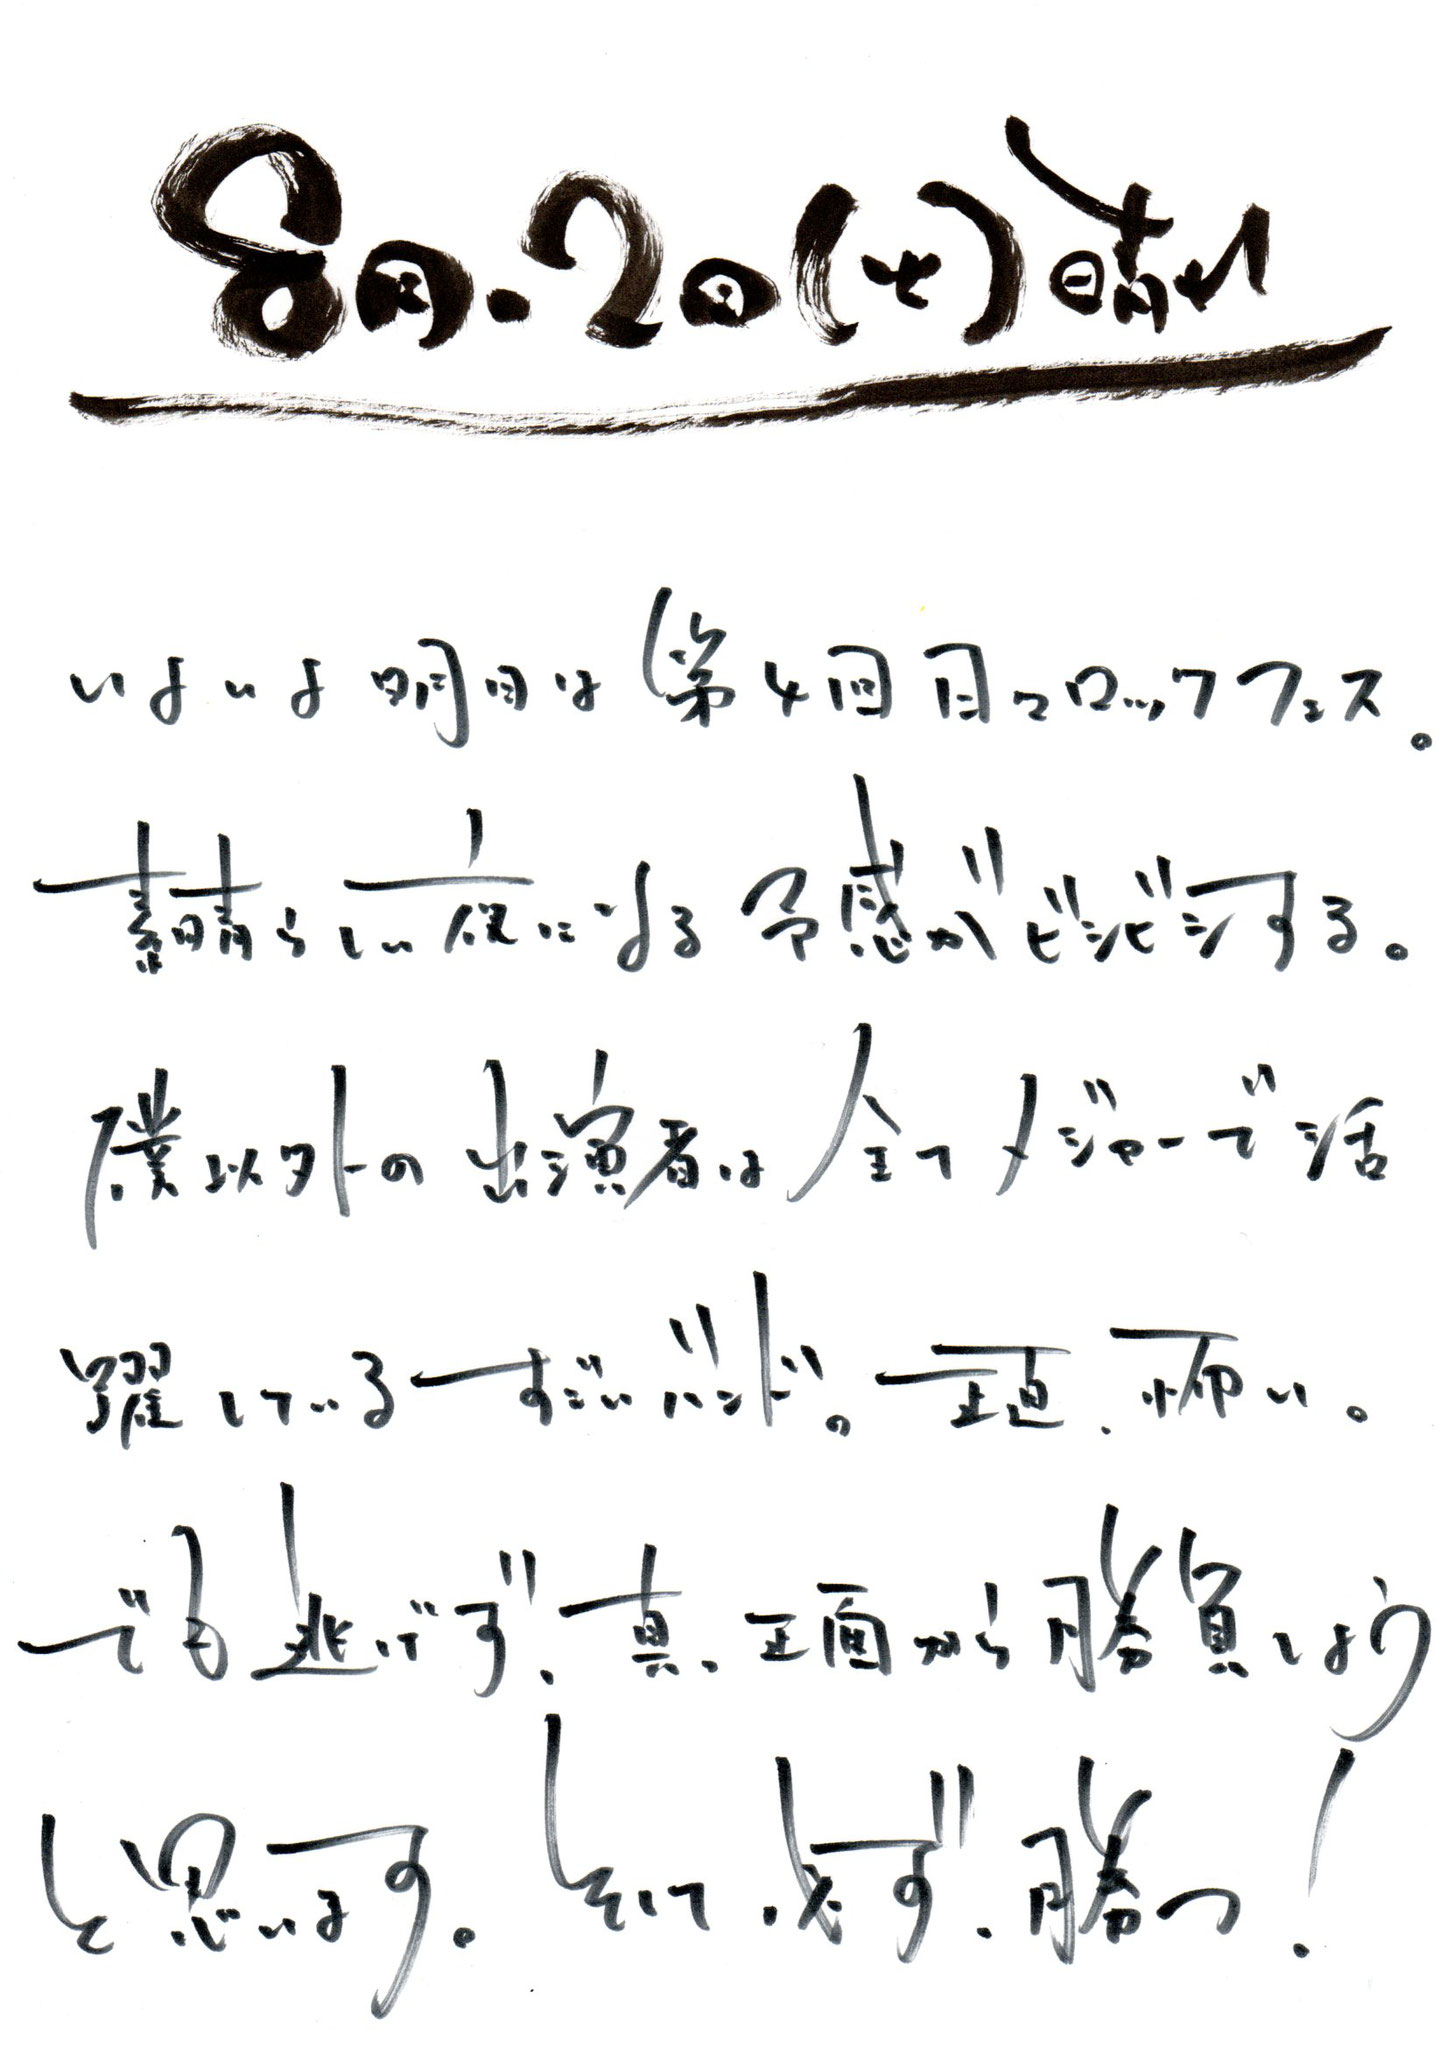 8月.2日(土)晴れ
いよいよ明日は第4回目のロックフェス。
素晴らしい夜になる予感がビシビシする。
僕以外の出演者は全てメジャーで活
躍しているすごいバンド。正直、怖い。
でも逃げず、真、正面から勝負しよう
と思います。そして、必ず、勝つ!